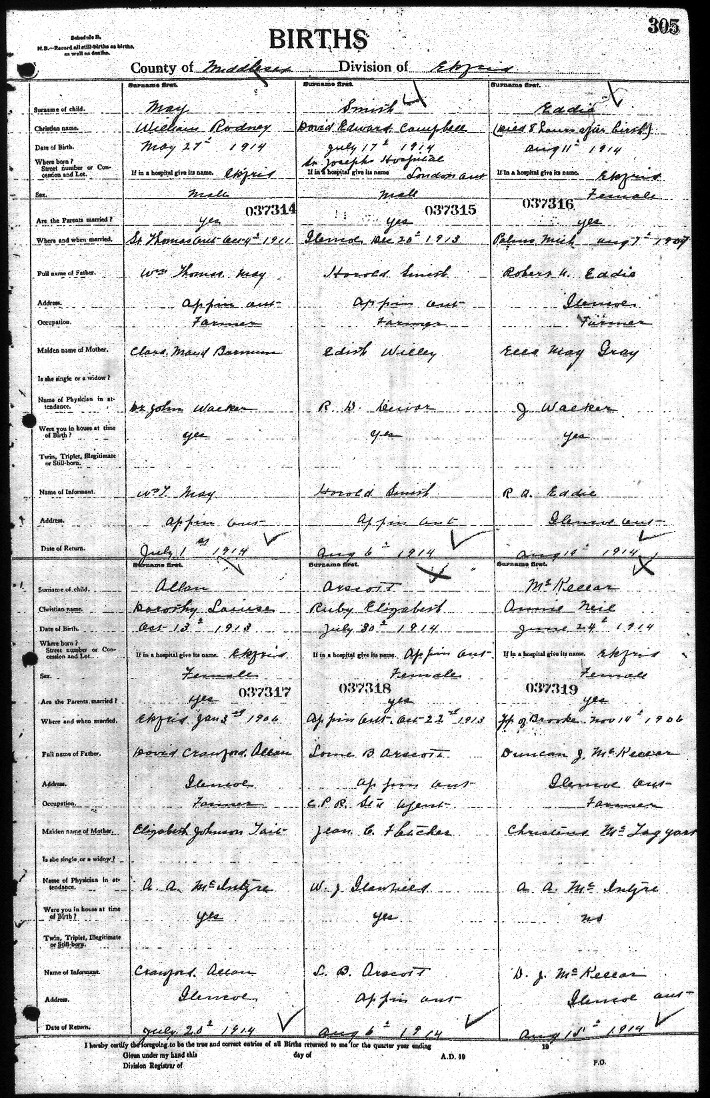 305
Schedule B.
N.B.—Record all still-births as births, as well as deaths.
BIRTHS
County of Middlesex Division of Ekfrid
Surname first. Surname first. Surname first.
Surname of child. May Smith Eddie
Christian name. William Rodney David Edward Campbell (Died 8 hours after birth)
Date of Birth. May 27th 1914 July 17th 1914 Aug 11th 1914
Where born? Street number or Concession and Lot. If in a hospital give its name. Ekfrid St Josephs Hospital If in a hospital give its name London Ont If in a hospital give its name. Ekfrid
Sex. Male Male Female
037314 037315 037316
Are the Parents married? yes yes yes
Where and when married. St Thomas Ont 4th 1911 Glencoe Dec 20th 1913 Mich Aug 7th
Full name of Father. Wm Thomas May Harold Smith Robert A. Eddie
Address. Appin Ont Appin Ont Glencoe
Occupation. Farmer Farmer Farmer
Maiden name of Mother. Clara Maud Barnum Edith Willey Ella May Gray
Is she single or a widow?
Name of Physician in attendance. Dr John Walker R. D. Dewar J Walker
Were you in house at time of Birth? yes yes yes
Twin, Triplet, Illegitimate or Still-born.
Name of Informant. Wm T. May Harold Smith R A. Eddie
Address. Appin Ont Appin Ont Glencoe Ont
Date of Return. July 1st 1914 Aug 6th 1914 Aug 1914
Surname first. Surname first. Surname first.
Surname of child. Allan Arscott McKellar
Christian name. Dorothy Louise Ruby Elizabeth Annie Neil
Date of Birth. Oct 13th 1913 July 30th 1914 June 24th 1914
Where born? Street number or Concession and Lot. If in a hospital give its name. Ekfrid If in a hospital give its name. Appin Ont If in a hospital give its name. Ekfrid
Sex. Female Female Female
037317 037318 037319
Are the Parents married? yes yes yes
Where and when married. Ekfrid Jan 3rd 1906 Appin Ont Oct 22nd 1913 Tp of Brooke Nov 14th 1906
Full name of Father. David Crawford Allan Lorne B Arscott Duncan J. McKellar
Address. Glencoe Appin Ont Glencoe Ont
Occupation. Farmer C.P.R. Stn Agent Farmer
Maiden name of Mother. Elizabeth Johnson Tait Jean C. Fletcher Christena McTaggart
Is she single or a widow?
Name of Physician in attendance. A. A. McIntyre W. J. A. A. McIntyre
Were you in house at time of Birth? yes yes no
Twin, Triplet, Illegitimate or Still-born.
Name of Informant. Crawford Allan L. B. Arscott D. J. McKellar
Address. Glencoe Appin Ont Glencoe Ont
Date of Return. July 20th 1914 Aug 6th 1914 Aug 1914
I hereby certify the foregoing to be the true and correct entries of all Births returned to me for the quarter year ending 19
Given under my hand this day of A.D. 19
Division Registrar of P.O.